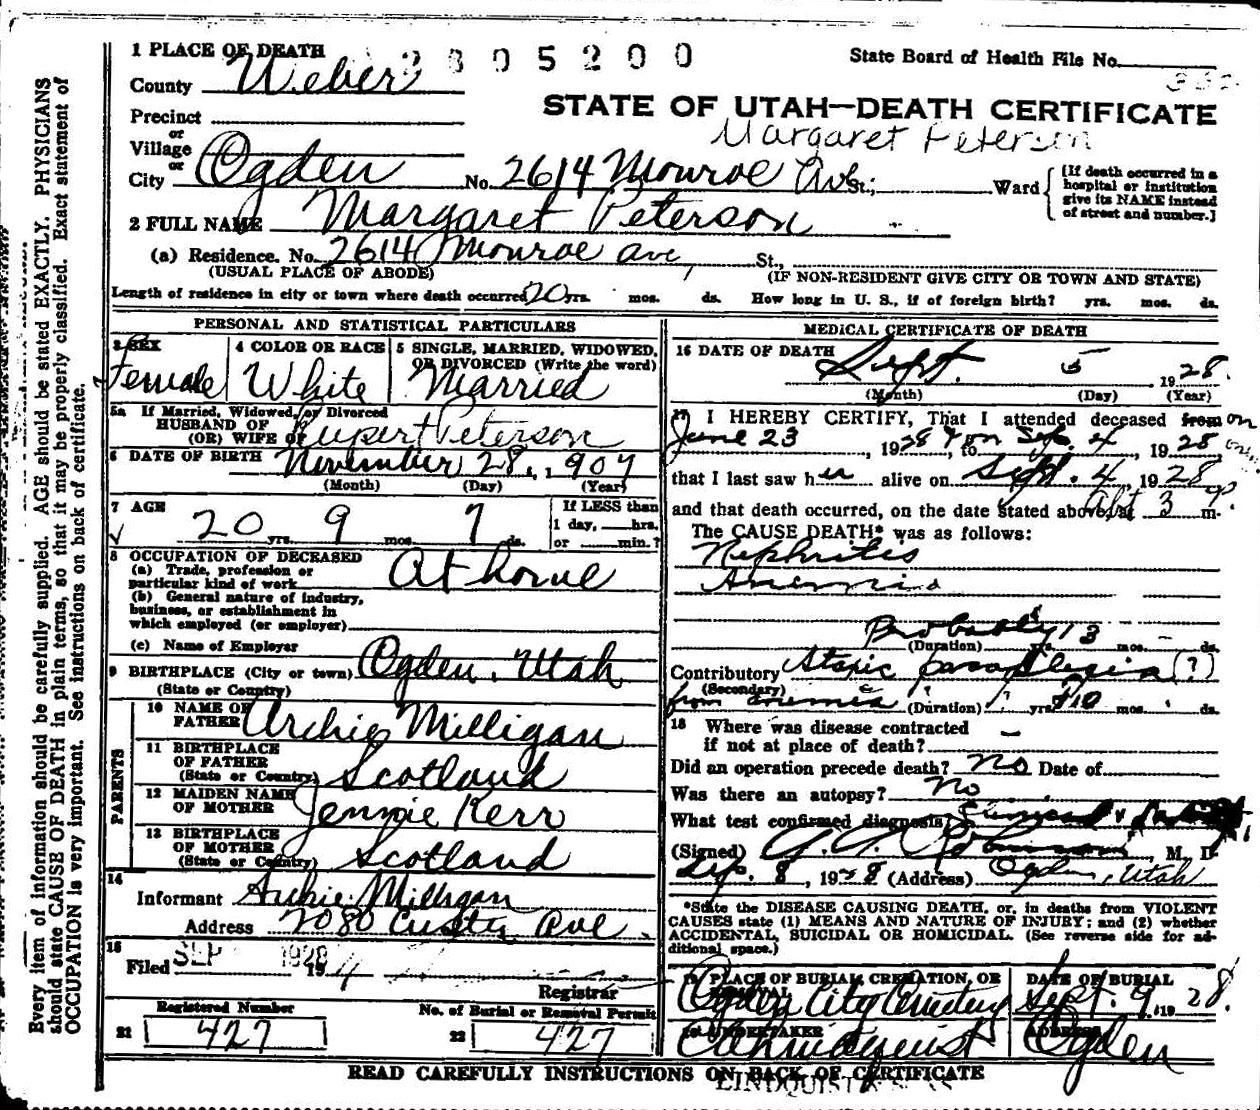 1 PLACE OF DEATH
2805200
State Board of Health File No.
County Weber
STATE OF UTAH—DEATH CERTIFICATE
Precinct
Margaret Peterson
or
Village
or
City Ogden No. 2614 Monroe Ave St.; Ward
[If death occurred in a
hospital or institution
give its NAME instead
of street and number.]
2 FULL NAME Margaret Peterson
(a) Residence. No. 2614 Monroe Ave, St.,
(USUAL PLACE OF ABODE) (IF NON-RESIDENT GIVE CITY OR TOWN AND STATE)
Length of residence in city or town where death occurred 20 yrs. mos. ds. How long in U. S., if of foreign birth? yrs. mos. ds.
PERSONAL AND STATISTICAL PARTICULARS
3 SEX Female
4 COLOR OR RACE White
5 SINGLE, MARRIED, WIDOWED,
OR DIVORCED (Write the word)
Married
5a If Married, Widowed, or Divorced
HUSBAND OF
(OR) WIFE OF Rupert Peterson
6 DATE OF BIRTH November 28, 1907
(Month) (Day) (Year)
7 AGE 20 yrs. 9 mos. 7 ds.
If LESS than
1 day, hrs.
or min.?
8 OCCUPATION OF DECEASED
(a) Trade, profession or
particular kind of work At home
(b) General nature of industry,
business, or establishment in
which employed (or employer)
(c) Name of Employer
9 BIRTHPLACE (City or town) Ogden, Utah
(State or Country)
PARENTS
10 NAME OF
FATHER Archie Milligan
11 BIRTHPLACE
OF FATHER
(State or Country) Scotland
12 MAIDEN NAME
OF MOTHER Jennie Kerr
13 BIRTHPLACE
OF MOTHER
(State or Country) Scotland
14
Informant Archie Milligan
Address 2080 Custer Ave.
15
Filed SEP 1928
Registrar
Registered Number
21 427
No. of Burial or Removal Permit
22 427
MEDICAL CERTIFICATE OF DEATH
16 DATE OF DEATH Sept. 5 1928.
(Month) (Day) (Year)
17 I HEREBY CERTIFY, That I attended deceased from on
June 23, 1928 & on Sep. 4, 1928
that I last saw her alive on Sept. 4, 1928
and that death occurred, on the date stated above, at abt 3 m.
The CAUSE DEATH* was as follows:
Nephrites
Anemia
Probably 13
(Duration) yrs. mos. ds.
Contributory Ataxic paraplegia (?)
(Secondary)
from anemia (Duration) yrs. 10 mos. ds.
18 Where was disease contracted
if not at place of death? —
Did an operation precede death? No Date of
Was there an autopsy? No
What test confirmed diagnosis?
(Signed) Robinson, M. D.
Sep. 8, 1928 (Address) Ogden, Utah
*State the DISEASE CAUSING DEATH, or, in deaths from VIOLENT
CAUSES state (1) MEANS AND NATURE OF INJURY; and (2) whether
ACCIDENTAL, SUICIDAL OR HOMICIDAL. (See reverse side for ad-
ditional space.)
19 PLACE OF BURIAL, CREMATION, OR
REMOVAL
Ogden City Cemetery
DATE OF BURIAL
Sept. 9, 1928.
20 UNDERTAKER
ADDRESS
Ogden
READ CAREFULLY INSTRUCTIONS ON BACK OF CERTIFICATE
LINDQUIST & SONS
Every item of information should be carefully supplied. AGE should be stated EXACTLY. PHYSICIANS
should state CAUSE OF DEATH in plain terms, so that it may be properly classified. Exact statement of
OCCUPATION is very important. See instructions on back of certificate.